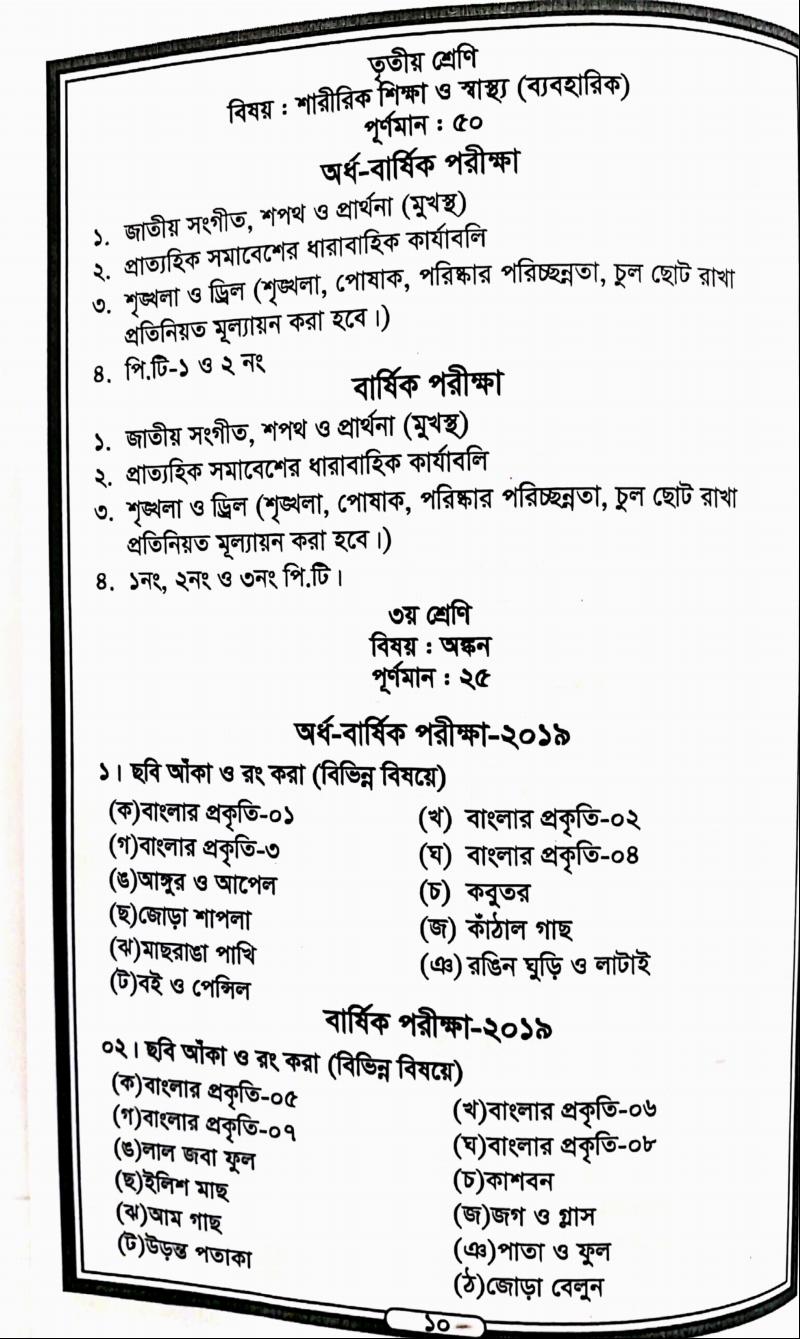 তৃতীয় শ্রেণি
বিষয় : শারীরিক শিক্ষা ও স্বাস্থ্য (ব্যবহারিক)
পূর্ণমান : ৫০
অর্ধ-বার্ষিক পরীক্ষা
১. জাতীয় সংগীত, শপথ ও প্রার্থনা (মুখস্থ)
২. প্রাত্যহিক সমাবেশের ধারাবাহিক কার্যাবলি
৩. শৃঙ্খলা ও ড্রিল (শৃঙ্খলা, পোষাক, পরিষ্কার পরিচ্ছন্নতা, চুল ছোট রাখা
প্রতিনিয়ত মূল্যায়ন করা হবে।)
৪. পি.টি-১ ও ২ নং
বার্ষিক পরীক্ষা
১. জাতীয় সংগীত, শপথ ও প্রার্থনা (মুখস্থ)
২. প্রাত্যহিক সমাবেশের ধারাবাহিক কার্যাবলি
৩. শৃঙ্খলা ও ড্রিল (শৃঙ্খলা, পোষাক, পরিষ্কার পরিচ্ছন্নতা, চুল ছোট রাখা
প্রতিনিয়ত মূল্যায়ন করা হবে।)
৪. ১নং, ২নং ও ৩নং পি.টি।
৩য় শ্রেণি
বিষয় : অঙ্কন
পূর্ণমান : ২৫
অর্ধ-বার্ষিক পরীক্ষা-২০১৯
১। ছবি আঁকা ও রং করা (বিভিন্ন বিষয়ে)
(ক)বাংলার প্রকৃতি-০১ (খ) বাংলার প্রকৃতি-০২
(গ)বাংলার প্রকৃতি-৩ (ঘ) বাংলার প্রকৃতি-০৪
(ঙ)আঙ্গুর ও আপেল (চ) কবুতর
(ছ)জোড়া শাপলা (জ) কাঁঠাল গাছ
(ঝ)মাছরাঙা পাখি (ঞ) রঙিন ঘুড়ি ও লাটাই
(ট)বই ও পেন্সিল
বার্ষিক পরীক্ষা-২০১৯
০২। ছবি আঁকা ও রং করা (বিভিন্ন বিষয়ে)
(ক)বাংলার প্রকৃতি-০৫ (খ)বাংলার প্রকৃতি-০৬
(গ)বাংলার প্রকৃতি-০৭ (ঘ)বাংলার প্রকৃতি-০৮
(ঙ)লাল জবা ফুল (চ)কাশবন
(ছ)ইলিশ মাছ (জ)জগ ও গ্লাস
(ঝ)আম গাছ (ঞ)পাতা ও ফুল
(ট)উড়ন্ত পতাকা (ঠ)জোড়া বেলুন
১০